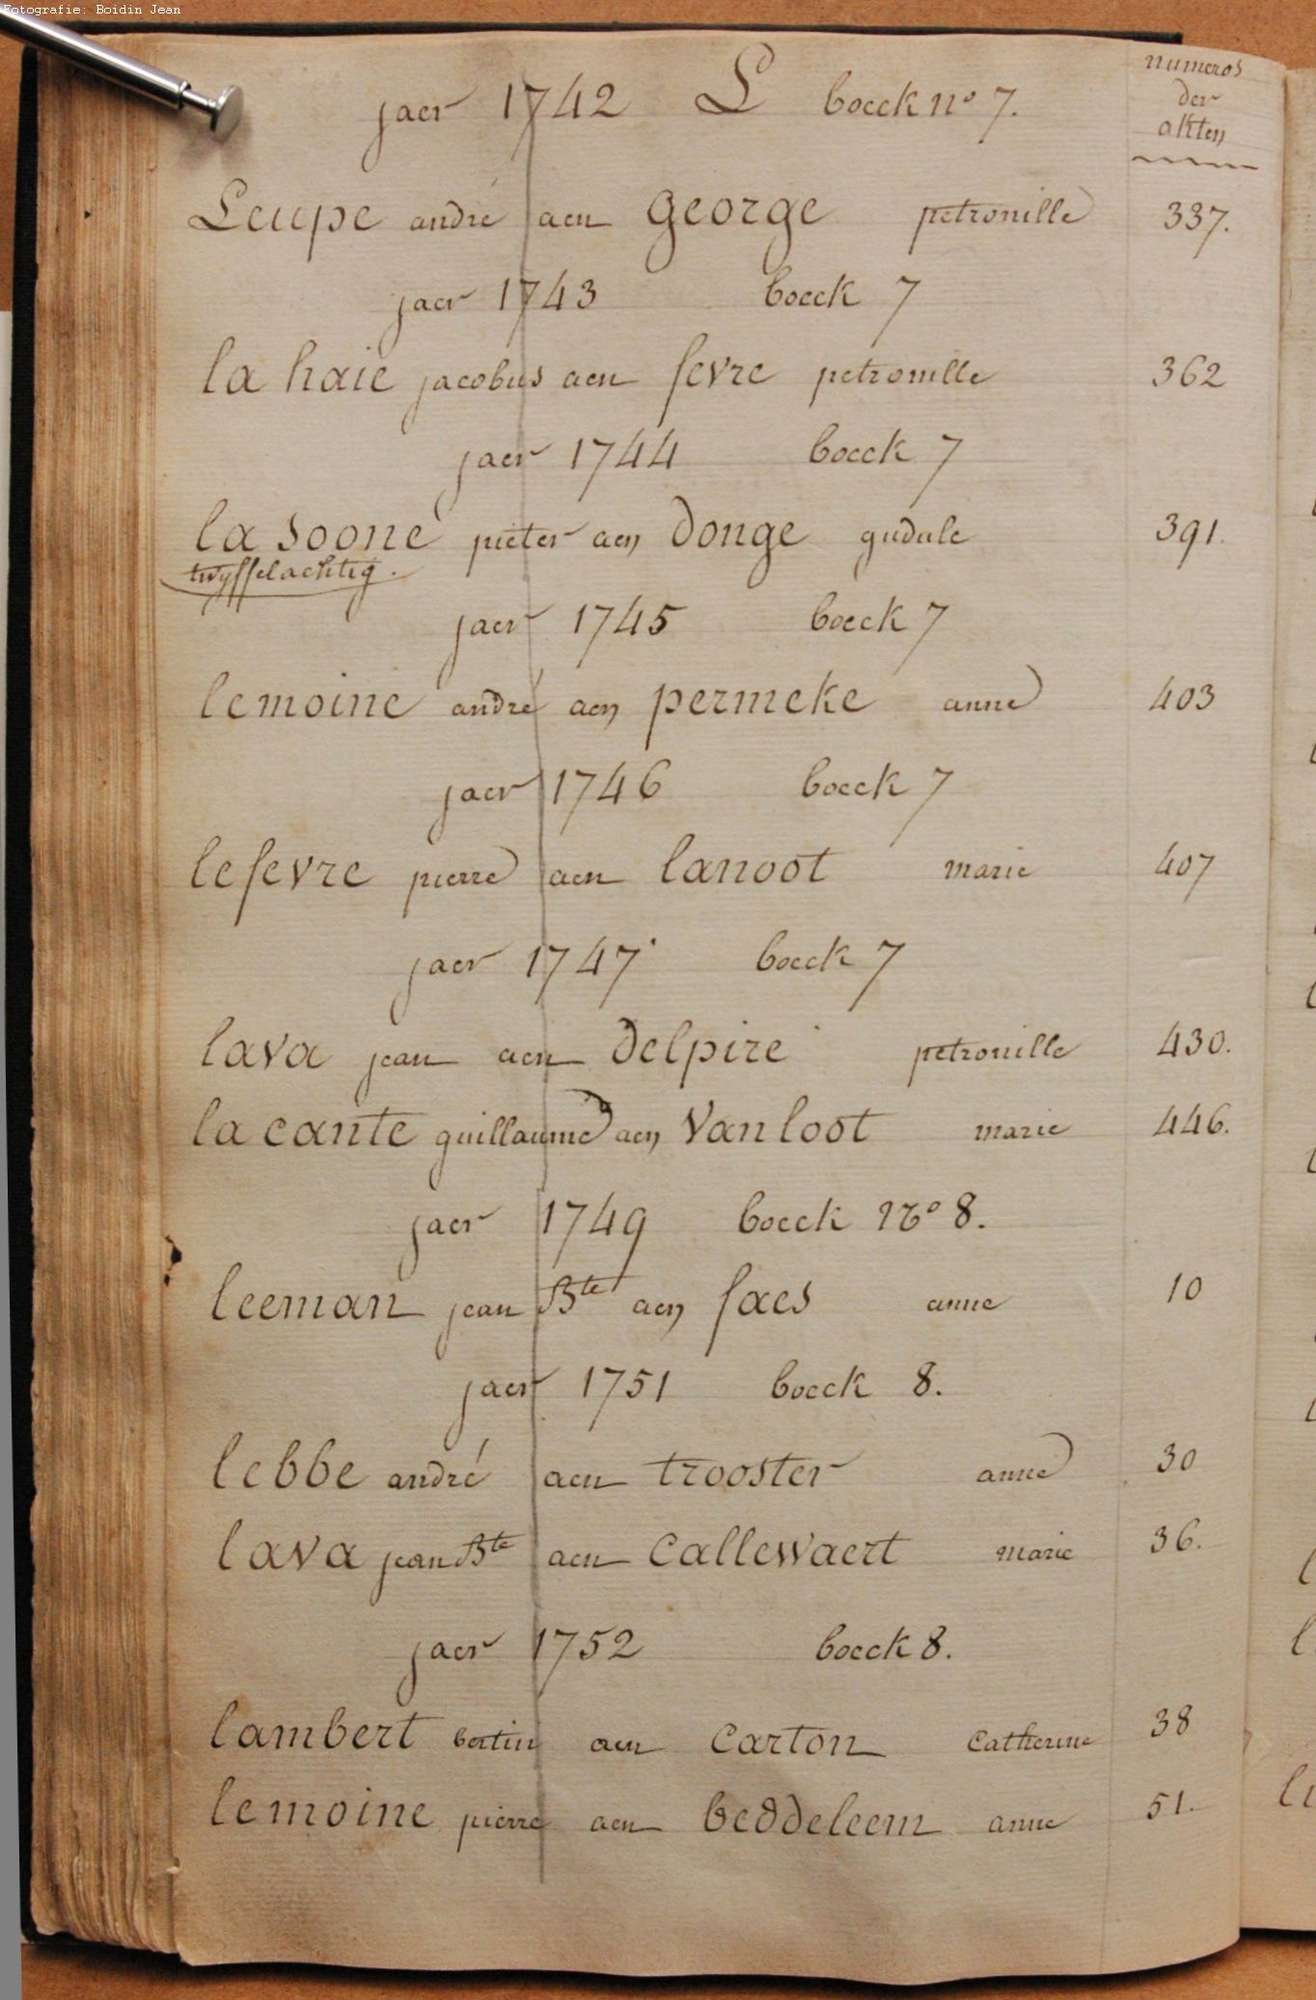 Fotografie: Boidin Jean
jaer 1742 L boeck no 7.
numeros
der
akten
Leupe andré aen george petronille 337.
jaer 1743 boeck 7
la haie jacobus aen fevre petronille 362
jaer 1744 boeck 7
la soone pieter aen donge gudule 391.
twyffelachtig.
jaer 1745 boeck 7
lemoine andré aen permeke anne 403
jaer 1746 boeck 7
lefevre pierre aen lanoot marie 407
jaer 1747 boeck 7
lava jean aen delpire petronille 430.
la cante guillaume aen van loot marie 446.
jaer 1749 boeck No 8.
leeman jean Bte aen faes anne 10
jaer 1751 boeck 8.
lebbe andré aen trooster anne 30
lava jean Bte aen callewaert marie 36.
jaer 1752 boeck 8.
lambert bertin aen carton catherine 38
lemoine pierre aen beddeleem anne 51.